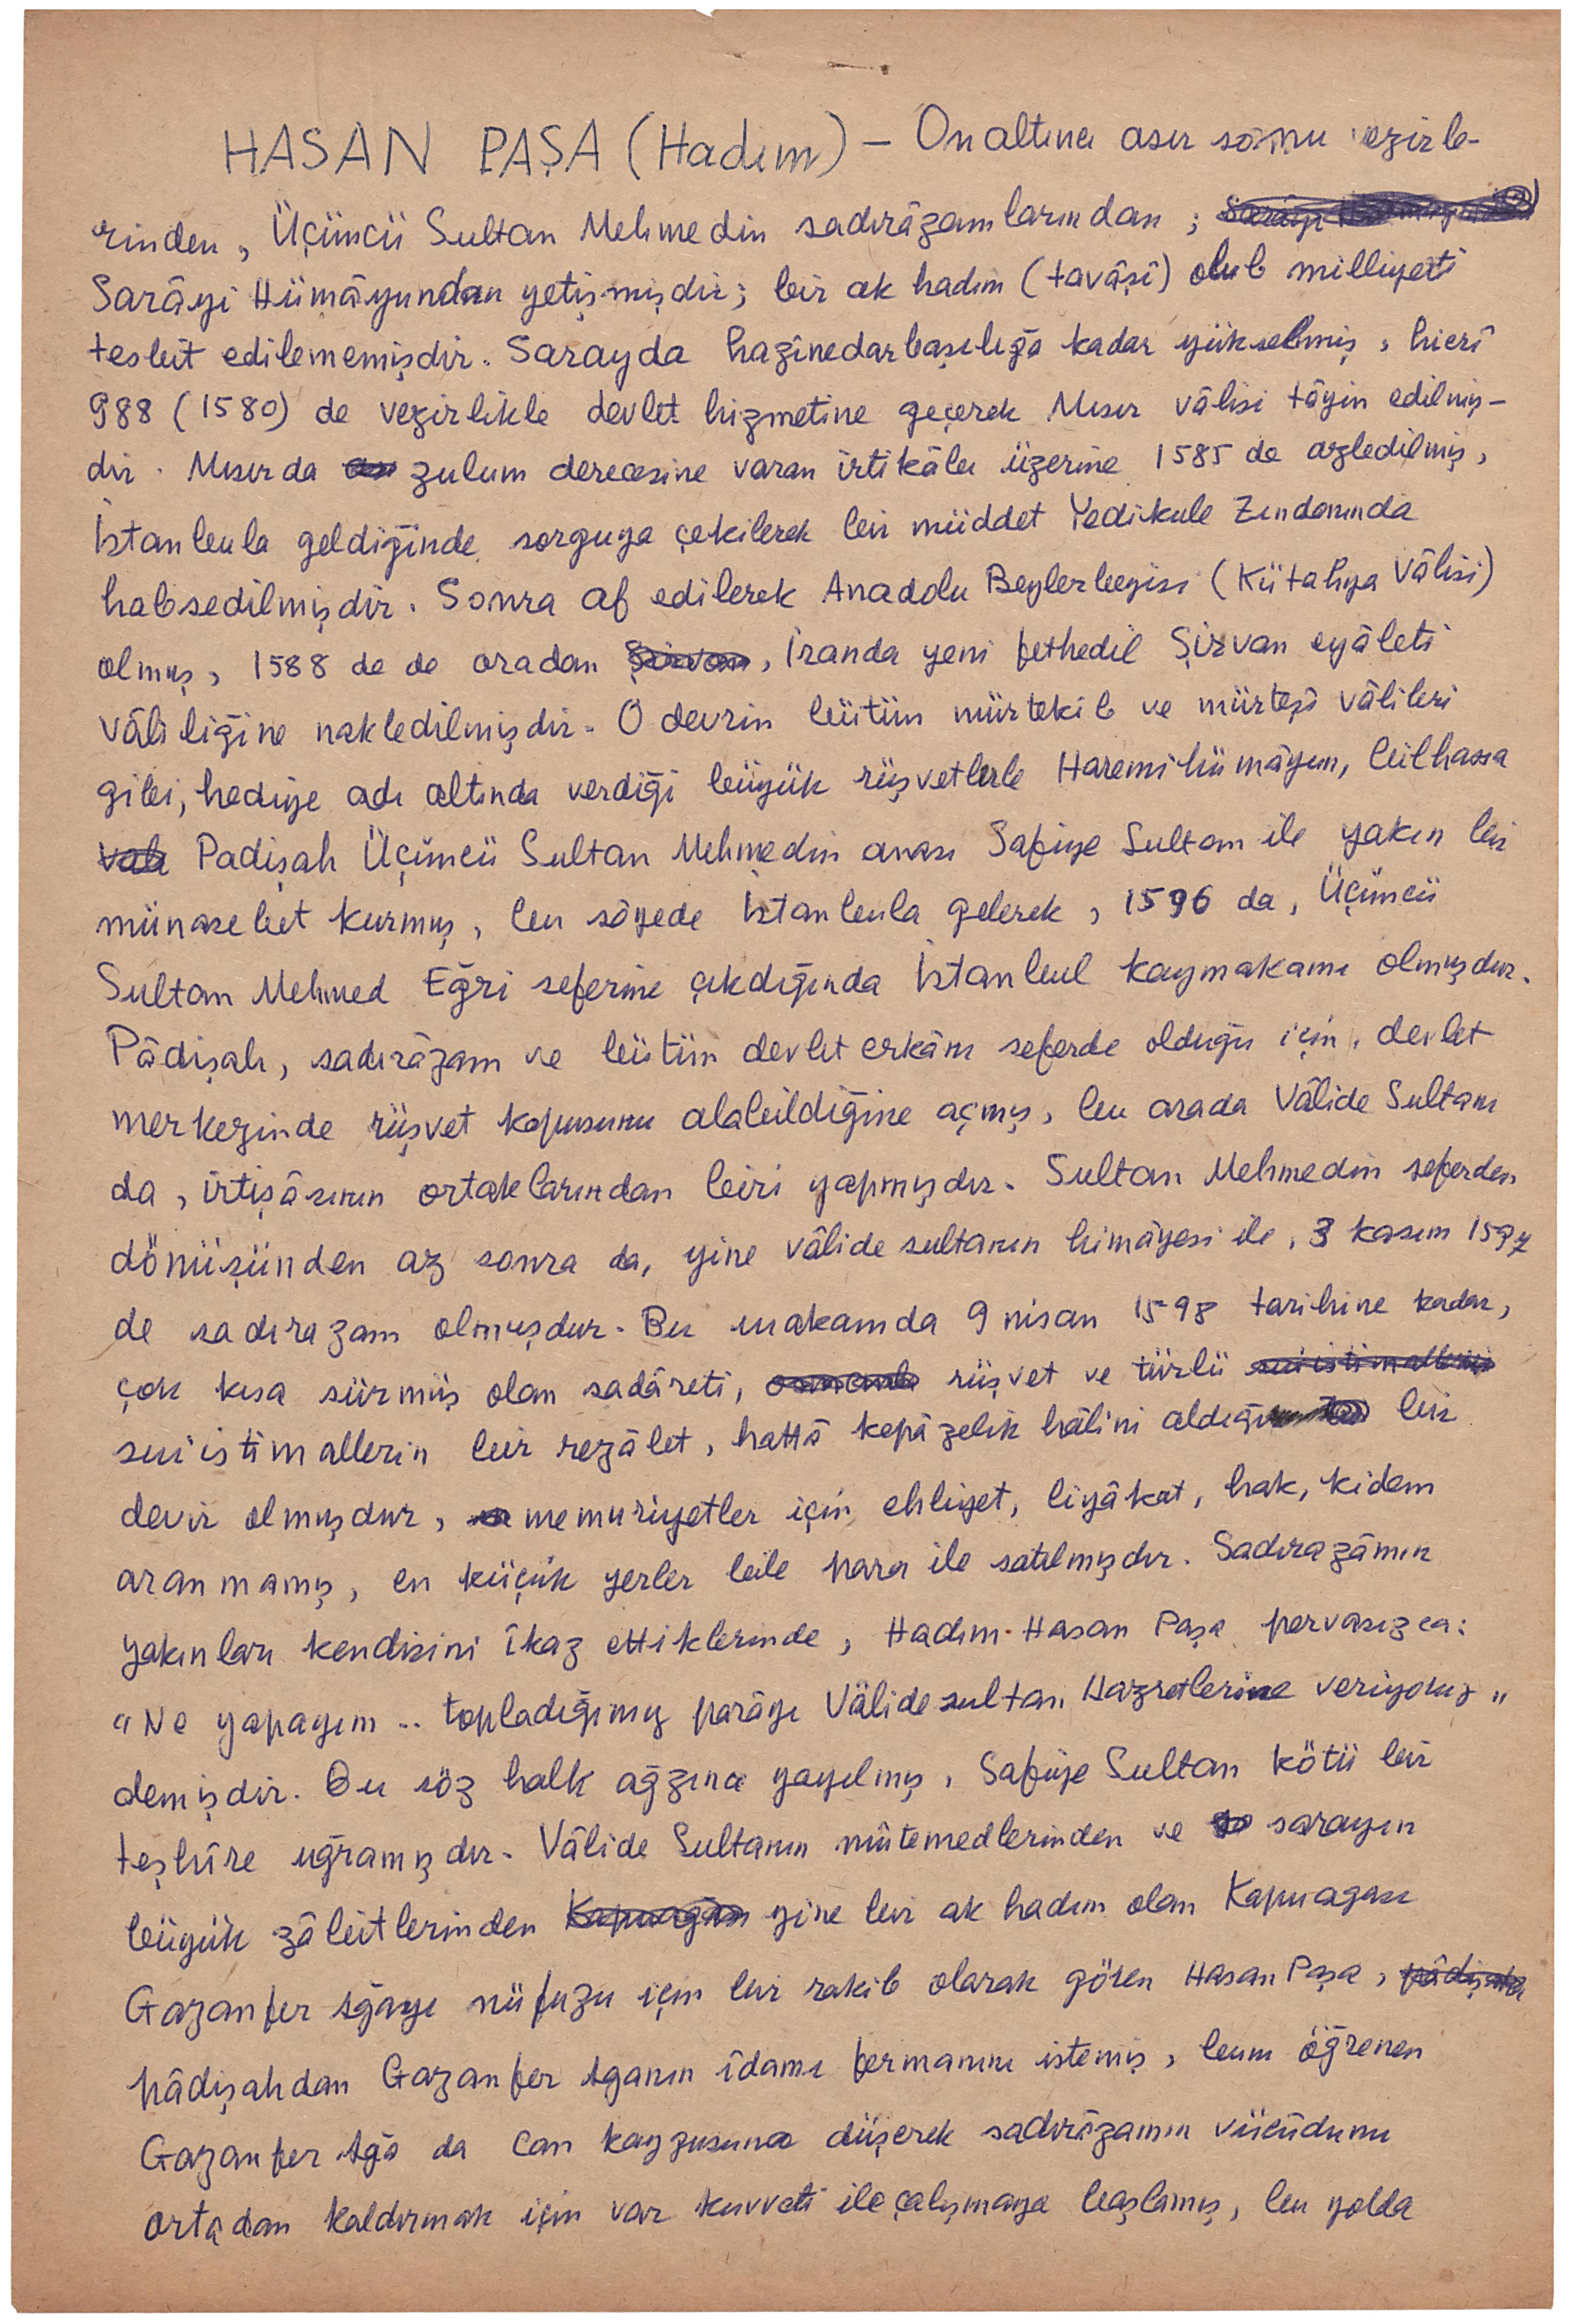 HASAN PAŞA (Hadım) — Onaltıncı asır sonu vezirle-
rinden, Üçüncü Sultan Mehmedin sadırâzamlarından;
Sarâyi Hümâyundan yetişmişdir; bir ak hadım (tavâşî) olub milliyeti
tesbit edilememişdir. Sarayda hazînedarbaşılığa kadar yükselmiş, hicrî
988 (1580) de vezirlikle devlet hizmetine geçerek Mısır vâlisi tâyin edilmiş-
dir. Mısırda zulum derecesine varan irtikâbı üzerine 1585 de azledilmiş,
İstanbula geldiğinde sorguya çekilerek bir müddet Yedikule Zındanında
habsedilmişdir. Sonra af edilerek Anadolu Beylerbeyisi (Kütahya Vâlisi)
olmuş, 1588 de de oradan Şirvan, İranda yeni fethedil Şirvan eyâleti
vâliliğine nakledilmişdir. O devrin bütün mürtekib ve mürteşî vâlileri
gibi, hediye adı altında verdiği büyük rüşvetlerle Haremihümâyun, bilhassa
vali Padişah Üçüncü Sultan Mehmedin anası Safiye Sultan ile yakın bir
münasebet kurmuş, bu sâyede İstanbula gelerek, 1596 da, Üçüncü
Sultan Mehmed Eğri seferine çıkdığında İstanbul kaymakamı olmuşdur.
Pâdişah, sadırâzam ve bütün devlet erkânı seferde olduğu için, devlet
merkezinde rüşvet kapusunu alabildiğine açmış, bu arada Vâlide Sultanı
da, irtişâsının ortaklarından biri yapmışdır. Sultan Mehmedin seferden
dönüşünden az sonra da, yine vâlide sultanın himâyesi ile, 3 kasım 1597
de sadırazam olmuşdur. Bu makamda 9 nisan 1598 tarihine kadar,
çok kısa sürmüş olan sadâreti, rüşvet ve türlü suiistimallerin
suiistimallerin bir rezâlet, hattâ kepâzelik hâlini aldığı bir
devir olmuşdur, memuriyetler için ehliyet, liyâkat, hak, kidem
aranmamış, en küçük yerler bile para ile satılmışdır. Sadırazâmın
yakınları kendisini îkaz ettiklerinde, Hadım Hasan Paşa pervasızca:
"Ne yapayım.. topladığımız parâyı Vâlidesultan Hazretlerine veriyoruz"
demişdir. Bu söz halk ağzına yayılmış, Safiye Sultan kötü bir
teşhîre uğramışdır. Vâlide Sultanın mûtemedlerinden ve sarayın
büyük zâbitlerinden Kapuağası yine bir ak hadım olan Kapuagası
Gazanfer Ağayı nüfuzu için bir rakib olarak gören Hasan Paşa, pâdişahdan
pâdişahdan Gazanfer Ağanın îdamı fermanını istemiş, bunı öğrenen
Gazanfer Ağa da can kaygusuna düşerek sadırâzamın vücûdunu
ortadan kaldırmak için var kuvveti ile çalışmaya başlamış, bu yolda